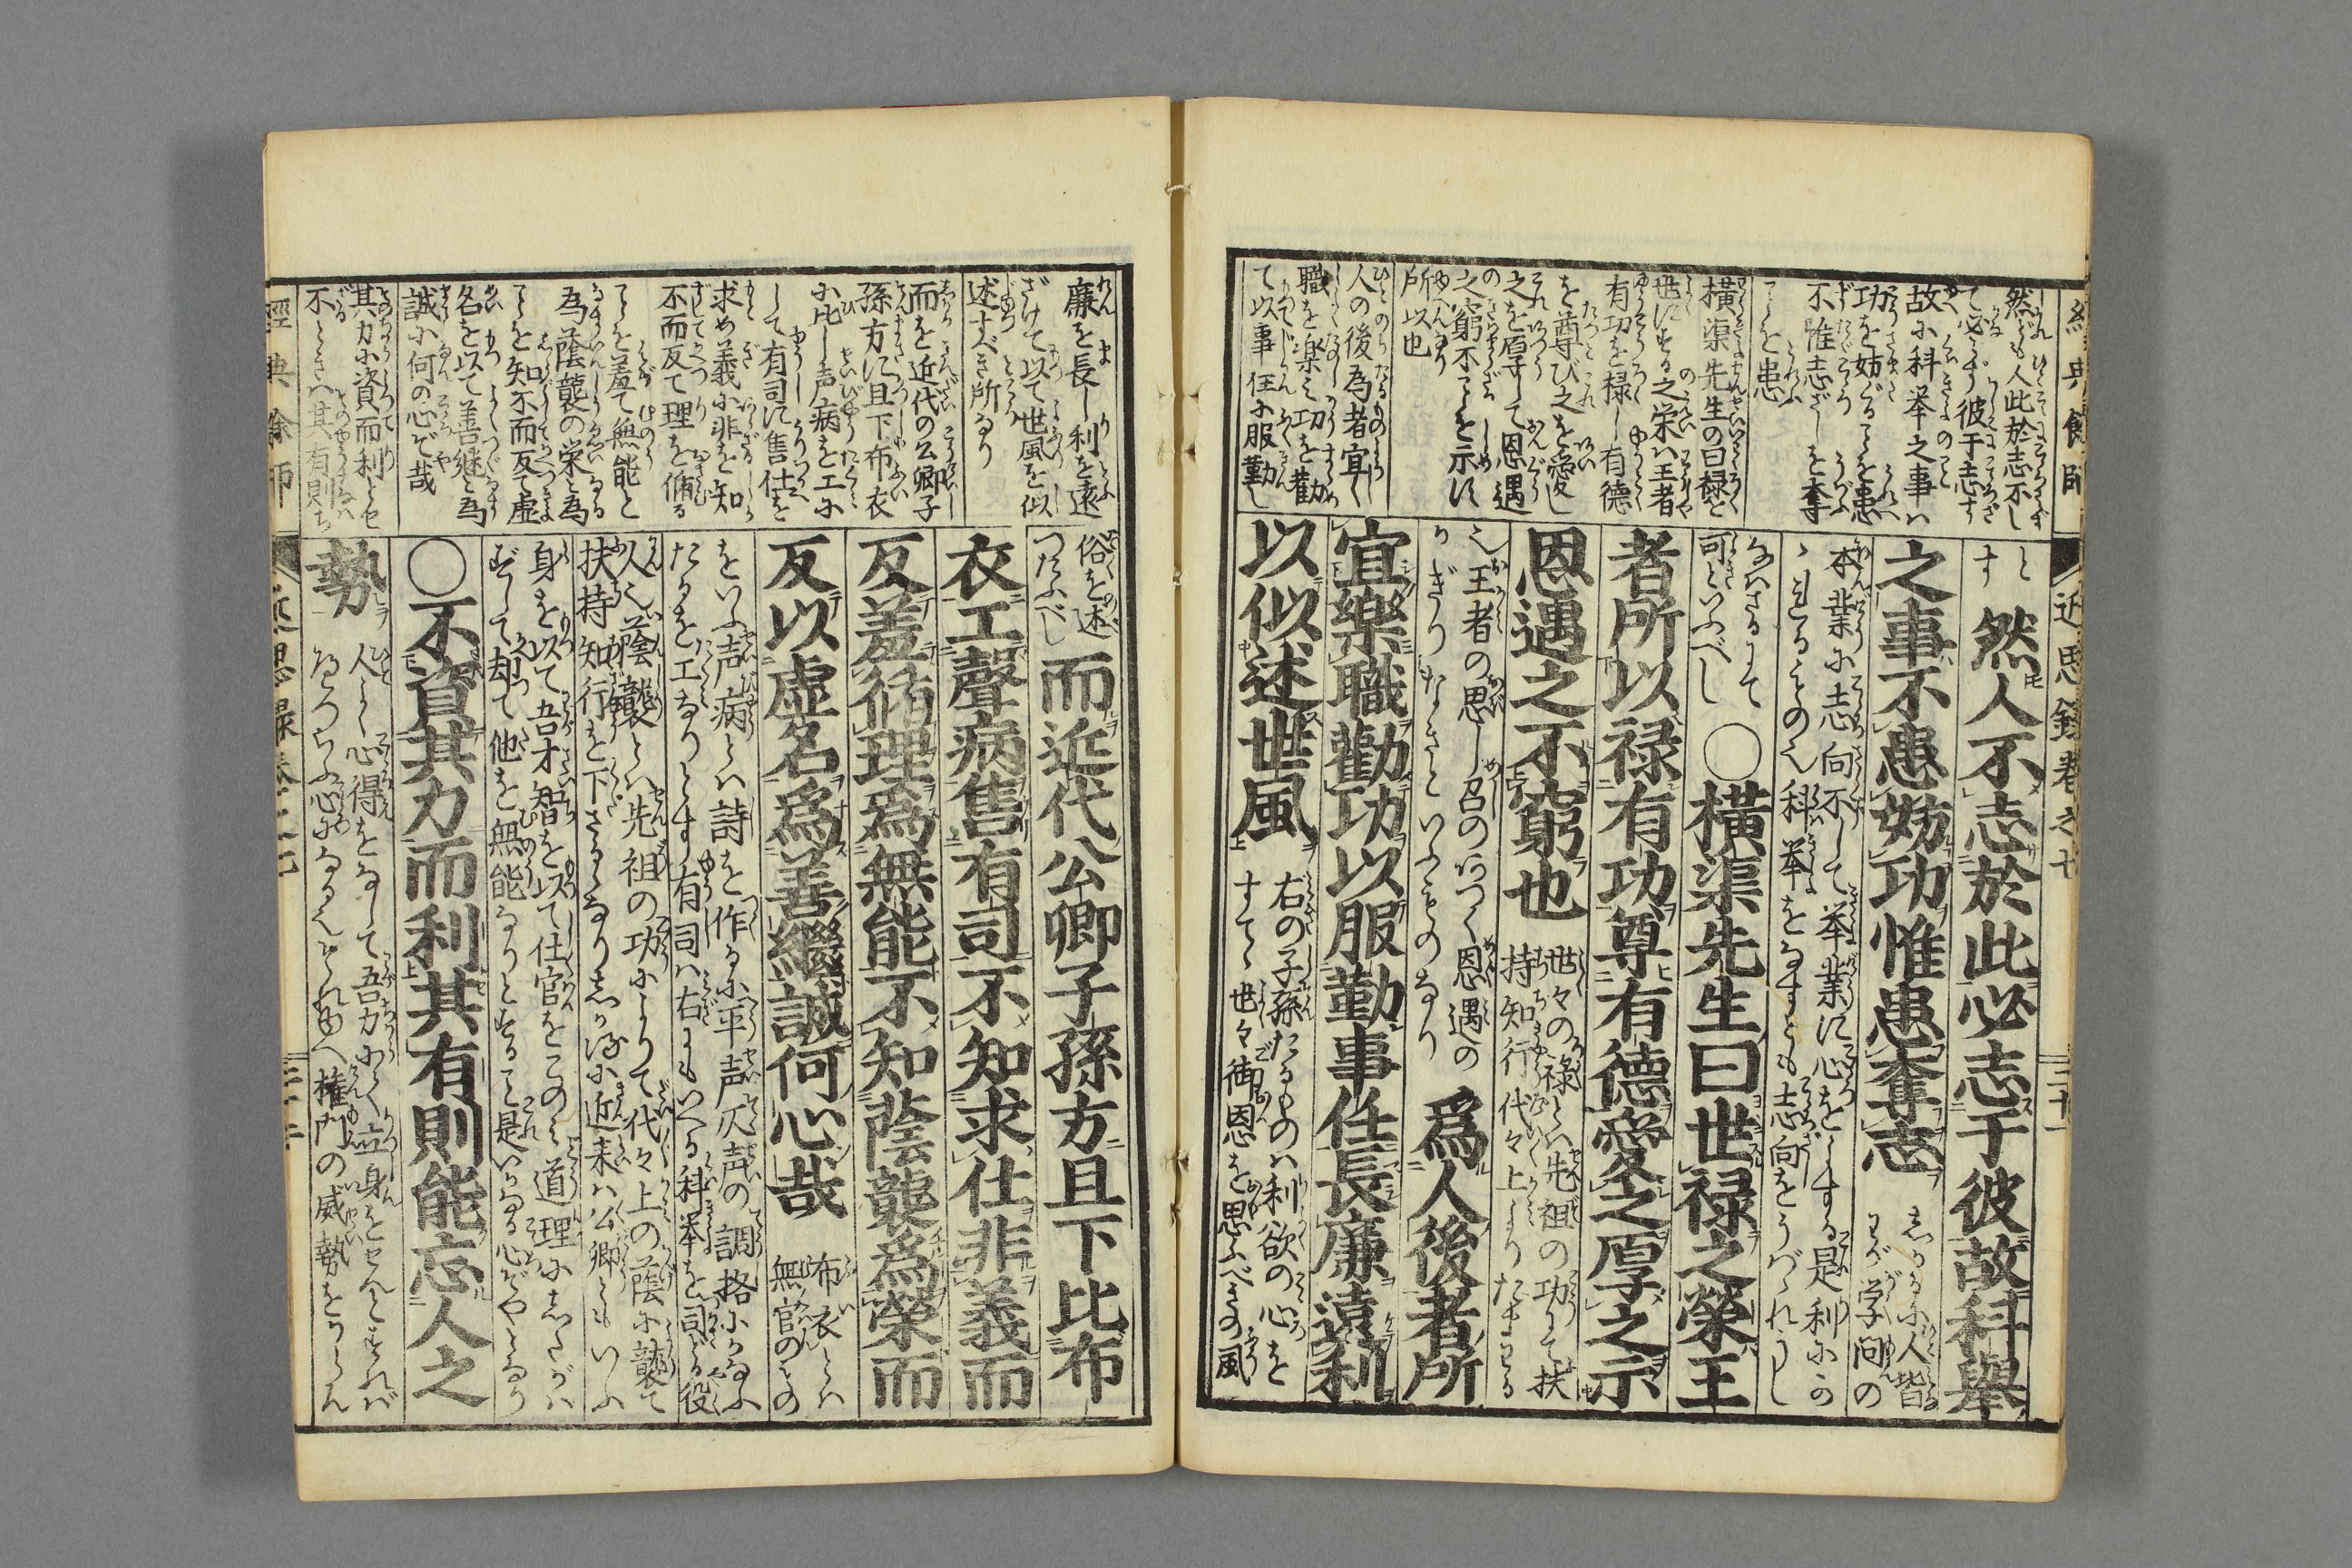 經典餘師
近思録巻之七
三十一
然ども人此於志不し
て必ず彼于志す
故に科挙之事ハ
功を妨ぐることを患
不惟志ざしを奪
ことを患
横渠先生の曰禄を
世にする之栄ハ王者
有功を禄し有徳
を尊び之を愛し
之を厚して恩遇
之窮不ことを示に
所以也
人の後為者宜く
職を楽み功を勧
て以事任に服勤し
す
然人不志於此必志于彼故科擧
之事不患妨功惟患奪志
しかるに人皆
わが学問の
本業に志向不して挙業に心をとする是利にか
科挙をなすとも志向をうばゝれうし
なハさるにて
可といふべし
〇横渠先生曰世禄之榮王
者所以禄有功尊有德愛之厚之示
恩遇之不窮也
世々の禄とハ先祖の功にて扶
持知行代々上よりたまわる
王者の思し召のいつく恩遇の
かぎりなきといふものなり
爲人後者所
宜樂職勸功以服勤事任長廉遠利
以似述世風
右の子孫たるものハ利欲の心を
すて世々御恩を思ふべきの風
廉を長し利を遠
ざけて以て世風を似
述すべき所なり
而を近代の公卿子
孫方に且下布衣
に比し声病を工に
して有司に售仕を
求め義に非を知
不而反て理を循る
ことを羞て無能と
為蔭襲の栄と為
ことを知不而反て虚
名を以て善継と為
誠に何の心ぞや哉
其力に資而利とせ
不ときハ其有則ち
俗を述
つたふべし
而近代公卿子孫方且下比布
衣工聲病售有司不知求仕非義而
反羞循理爲無能不知蔭襲爲榮而
反以虚名爲善繼誠何心哉
布衣とハ
無官のもの
をいふ声病とハ詩を作るに平声仄声の調格にかなふ
たるを工なりとす有司ハ右にもいへる科挙を司どる役
人也蔭襲とハ先祖の功によりて代々上の蔭に襲て
扶持知行を下さるゝなりしかるに近来ハ公卿ともいふ
身を以て吾才智を以て仕官をこのみ道理にしたがハ
ずして却て他を無能なりとすること是いかなる心ぞやとなり
〇不資其力而利其有則能忘人之
勢
人よく心得をなして吾力にて立身をせんとすれバ
へつらふ心になるべしそれゆへ権門の威勢をかうらん
經典餘師
近思録巻之七
三十二